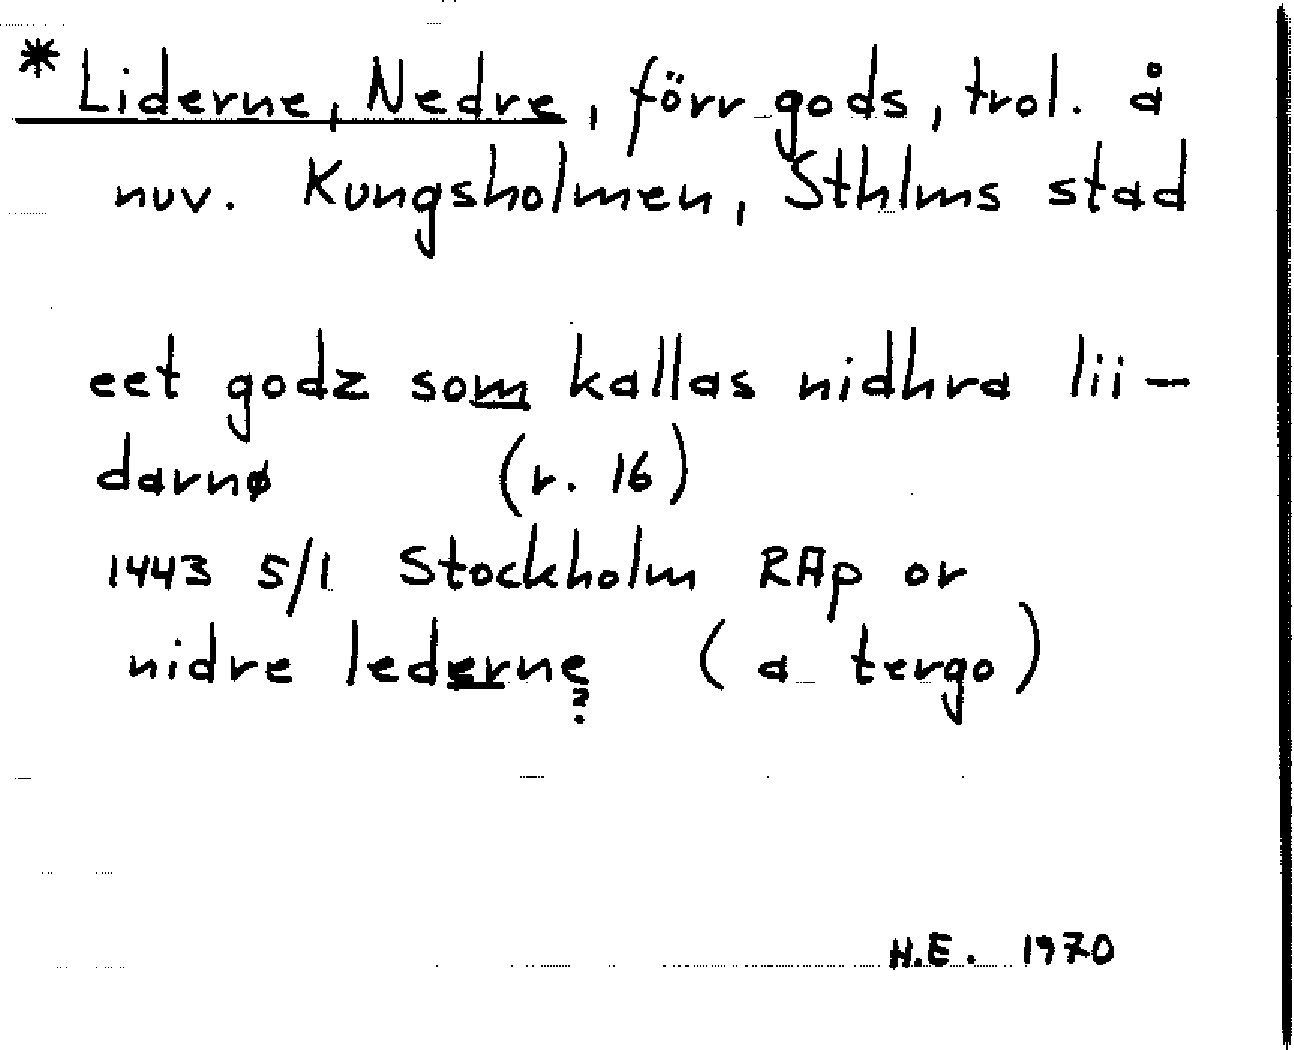 * Liderne, Nedre, förr gods, trol. å
nuv. Kungsholmen, Sthlms stad
eet godz som kallas nidhra lii-
darnø (r. 16)
1443 5/1 Stockholm RAp or
nidre lederne (a tergo)
?
H.E. 1970